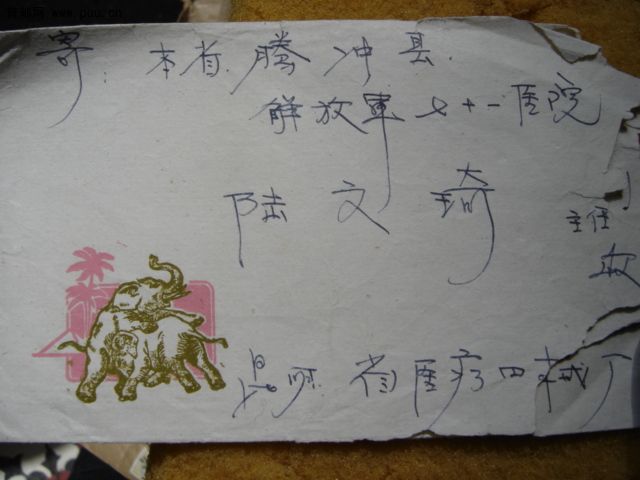 寄：本省腾冲县
解放軍七十一医院
陆文琦
主任
收
昆明 省医疗口械厂